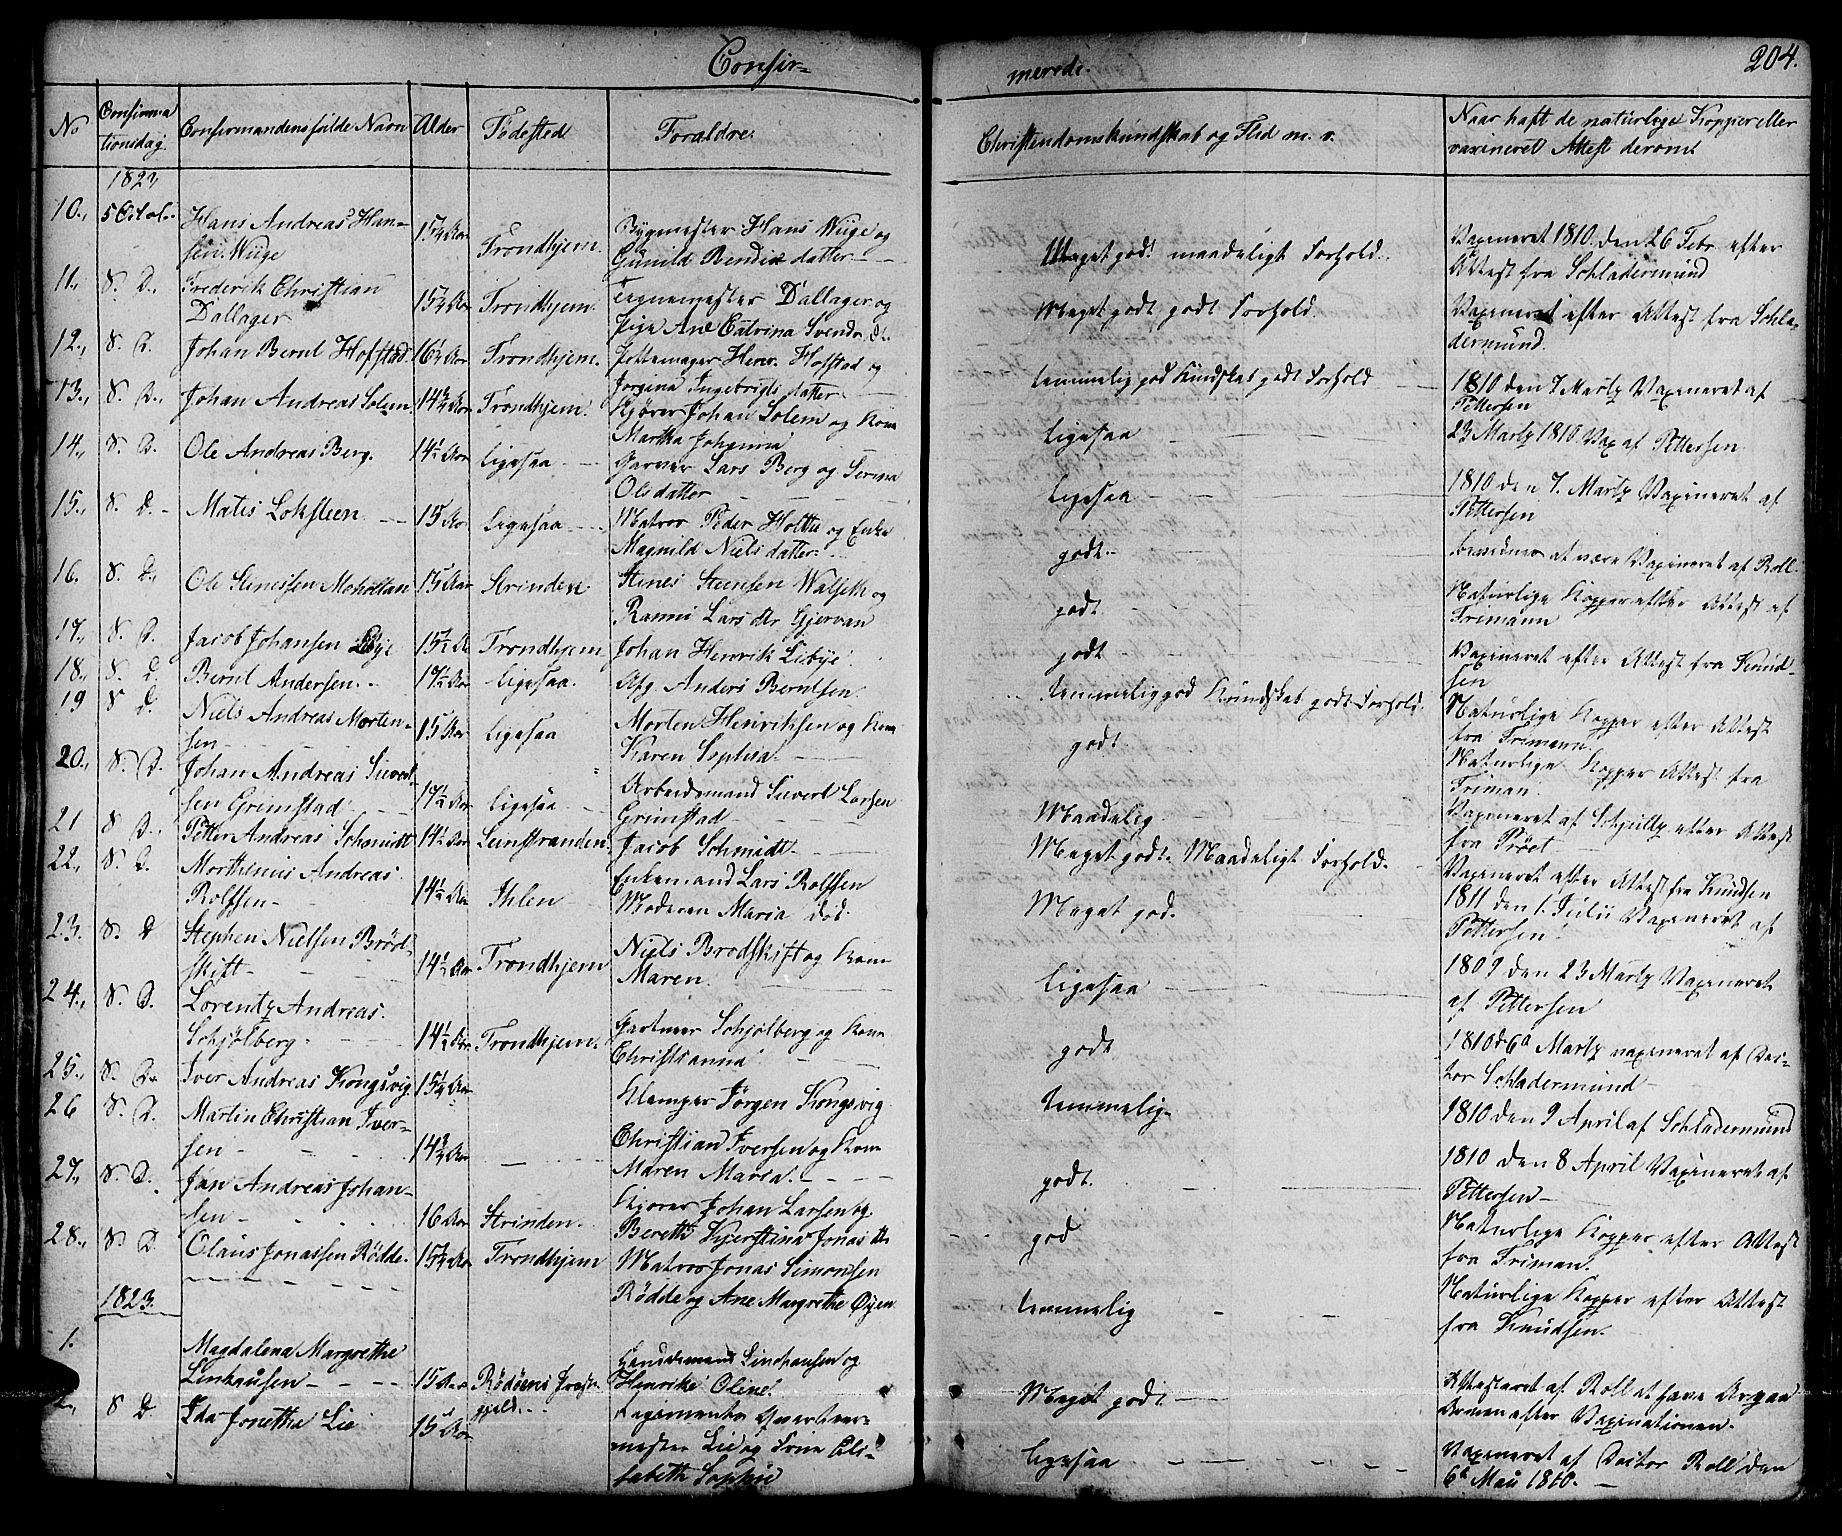 Confir-
merede.
204.
No
Confirma
tionsdag.
Confirmandens fulde Navn
Alder
Fødested
Foraldre
Christendomskundskab og Flid m. v.
Naar haft de naturlige Kopper eller
vaxineret Attest derom
1823
10., 5 Octob. Hans Andreas Han-
sen Wüge 15 1/4 Aar Trondhjem.
Bygmester Hans Wüge og
Gunild Bendix datter
Meget godt maadeligt Forhold.
Vaxineret 1810. den 26 Febr efter
Attest fra Schladermund
11., 8. D., Frederik Christian
Dallager 15 1/4 Aar Trondhjem.
Tegnemester Dallager og
Pige Ane Catrina Svends. d.
Meget godt godt Forhold
Vaxineret efter Attest fra Schla-
dermund.
12., 8. D. Johan Bernt Hofstad. 16 1/2 Aar Trondhjem.
Pottemager Henr. Hofstad og
Jorgina Ingebrigts datter
temmelig god Kundskab godt Forhold
1810 den 7 Martz Vaxineret af
Pettersen
13., 8. D., Johan Andreas Solem 14 3/4 Aar Trondhjem.
Kjører Johan Solem og Kone
Martha Johanna
ligesaa
23 Martz 1810 Vax af Pettersen
14., 8. D. Ole Andreas Berg. 14 1/2 Aar ligesaa
Garver Lars Berg og Serina
Olsdatter
ligesaa
1810 den 7. Martz Vaxineret af
Pettersen
15., 8. D. Matis Loksteen 15 Aar ligesaa
Matros Peder Holthe og Enke
Magnild Niels datter
godt
at være Vaxineret af Roll.
16. 8. D., Ole Stenessen Moholtan 15 Aar Strinden
Stenes Steensen Walseth og
Ranni Lars dtr Gjervan
godt
Naturlige Kopper efter Attest af
Trimann
17., 8. D. Jacob Johansen Libye 15 1/2 Aar Trondhjem
Johan Henrik Libye
godt
Vaxineret efter Attest fra Knud-
sen
18., 8. D. Bernt Andersen. 17 1/2 Aar ligesaa.
Afg. Anders Berntsen
temmelig god Kundskab godt Forhold.
Naturlige Kopper efter Attest
fra Trimann
19 8 D. Niels Andreas Morten-
sen 15 Aar ligesaa
Morten Henriksen og Kone
Karen Sophia
godt
Naturlige Kopper Attest fra
Triman.
20., 8. D. Johan Andreas Sivert
sen Grimstad 17 1/2 Aar ligesaa
Arbeidsmand Sivert Larsen
Grimstad
Maadelig
Vaxineret af Schjultz efter Attest
fra Pröet
21 8 D. Petter Andreas Schmidt 14 1/2 Aar Leinstranden
Jacob Schmidt
Meget godt. Maadeligt Forhold.
Vaxineret efter Attest fra Knudsen
22., 8. D. Morthenius Andreas
Rolfsen 14 1/2 Aar Ihlen
Enkemand Lars Rolfsen
Moderen Maria død.
Meget god.
1811 den 1. Julii Vaxineret af
Pettersen
23. 8. D Stephen Nielsen Bröd-
skift 14 1/2 Aar Trondhjem
Niels Brodskift og Kone
Maren
ligesaa
1809 den 23 Martz Vaxineret
af Pettersen
24., 8. D. Lorentz Andreas
Schjølberg 14 1/2 Aar Trondhjem
Gartneer Schjølberg og Kone
Christianna
godt
1810 d 6te Martz vaxineret af Doc-
tor Schladermund
25., 8. D. Iver Andreas Kongsvig. 15 1/4 Aar
Klemper Jørgen Kongsvig
temmelig
1810 den 9 April af Schladermund
26 8. D. Martin Christian Iver-
sen 14 3/4 Aar
Christian Iversen og Kone
Maren Maria.
godt.
1810 den 8 April Vaxineret af
Pettersen
27., 8. D. Jan Andreas Johan-
sen 16 Aar Strinden.
Kjører Johan Larsen og.
Bereth Kjerstina Jonas dtr
god
Naturlige Kopper efter Attest
fra Triman.
28., 8 D. Olaus Jonassen Rödde 15 3/4 Aar Trondhjem
Matros Jonas Simonsen
Rödde og Ane Margrethe Öyen
temmelig
Naturlige Kopper efter Attest
fra Knudsen.
1823.
1. Magdalena Margrethe
Linhausen 15 Aar Rödöens Præste
gjeld.
Lensmand Lindhausen og
Henrike Oline
Meget godt
Attesteret af Roll at have Ar paa
Armen efter Vaxinationen.
2., 8 D Ida Jonetha Lie 15 Aar
Regiments Qvarteer-
mester Lie og Frue Eli-
sabeth Sophie
ligesaa
Vaxineret af Doctor Roll den
6te Mai 1810.